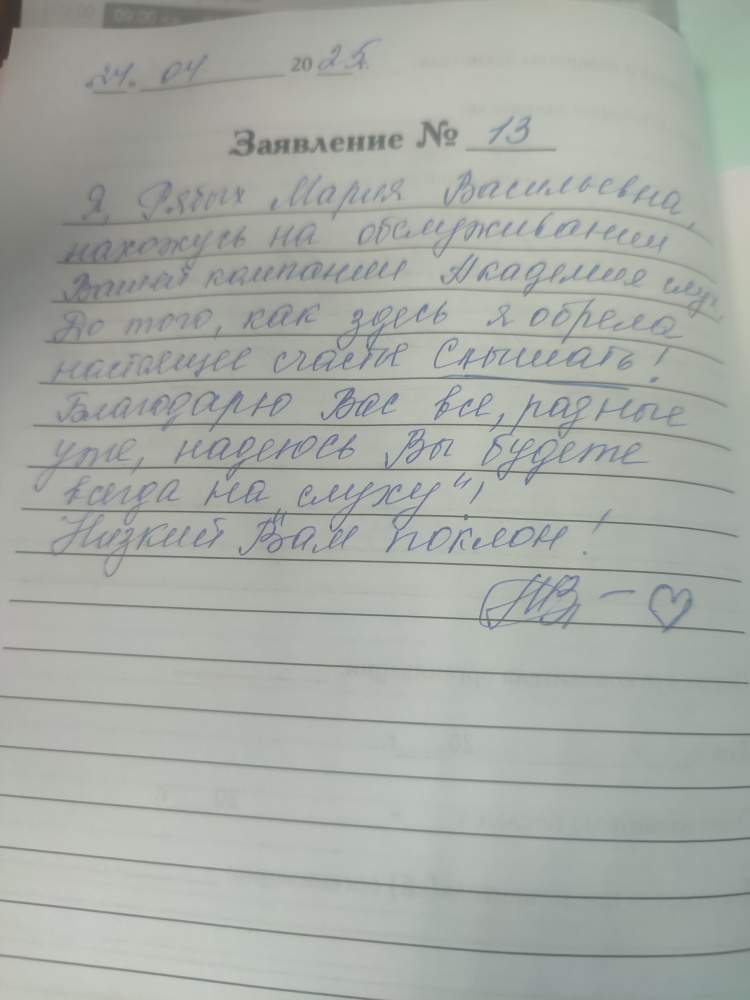 24. 04 2025г.
Заявление № 13
Я, Рябых Мария Васильевна,
нахожусь на обслуживании
Вашей компании Академия слух.
До того, как здесь я обрела
настоящее счастье Слышать!
Благодарю Вас все, родные
уже, надеюсь Вы будете
всегда на „слуху“!
Низкий Вам поклон!